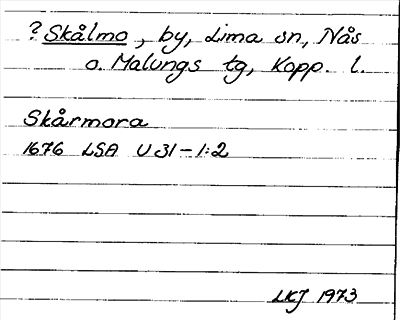 ? Skålmo, by, Lima sn, Nås
o. Malungs tg, Kopp. l.
Skårmora
1676 LSA U 31-1:2
LKJ 1973